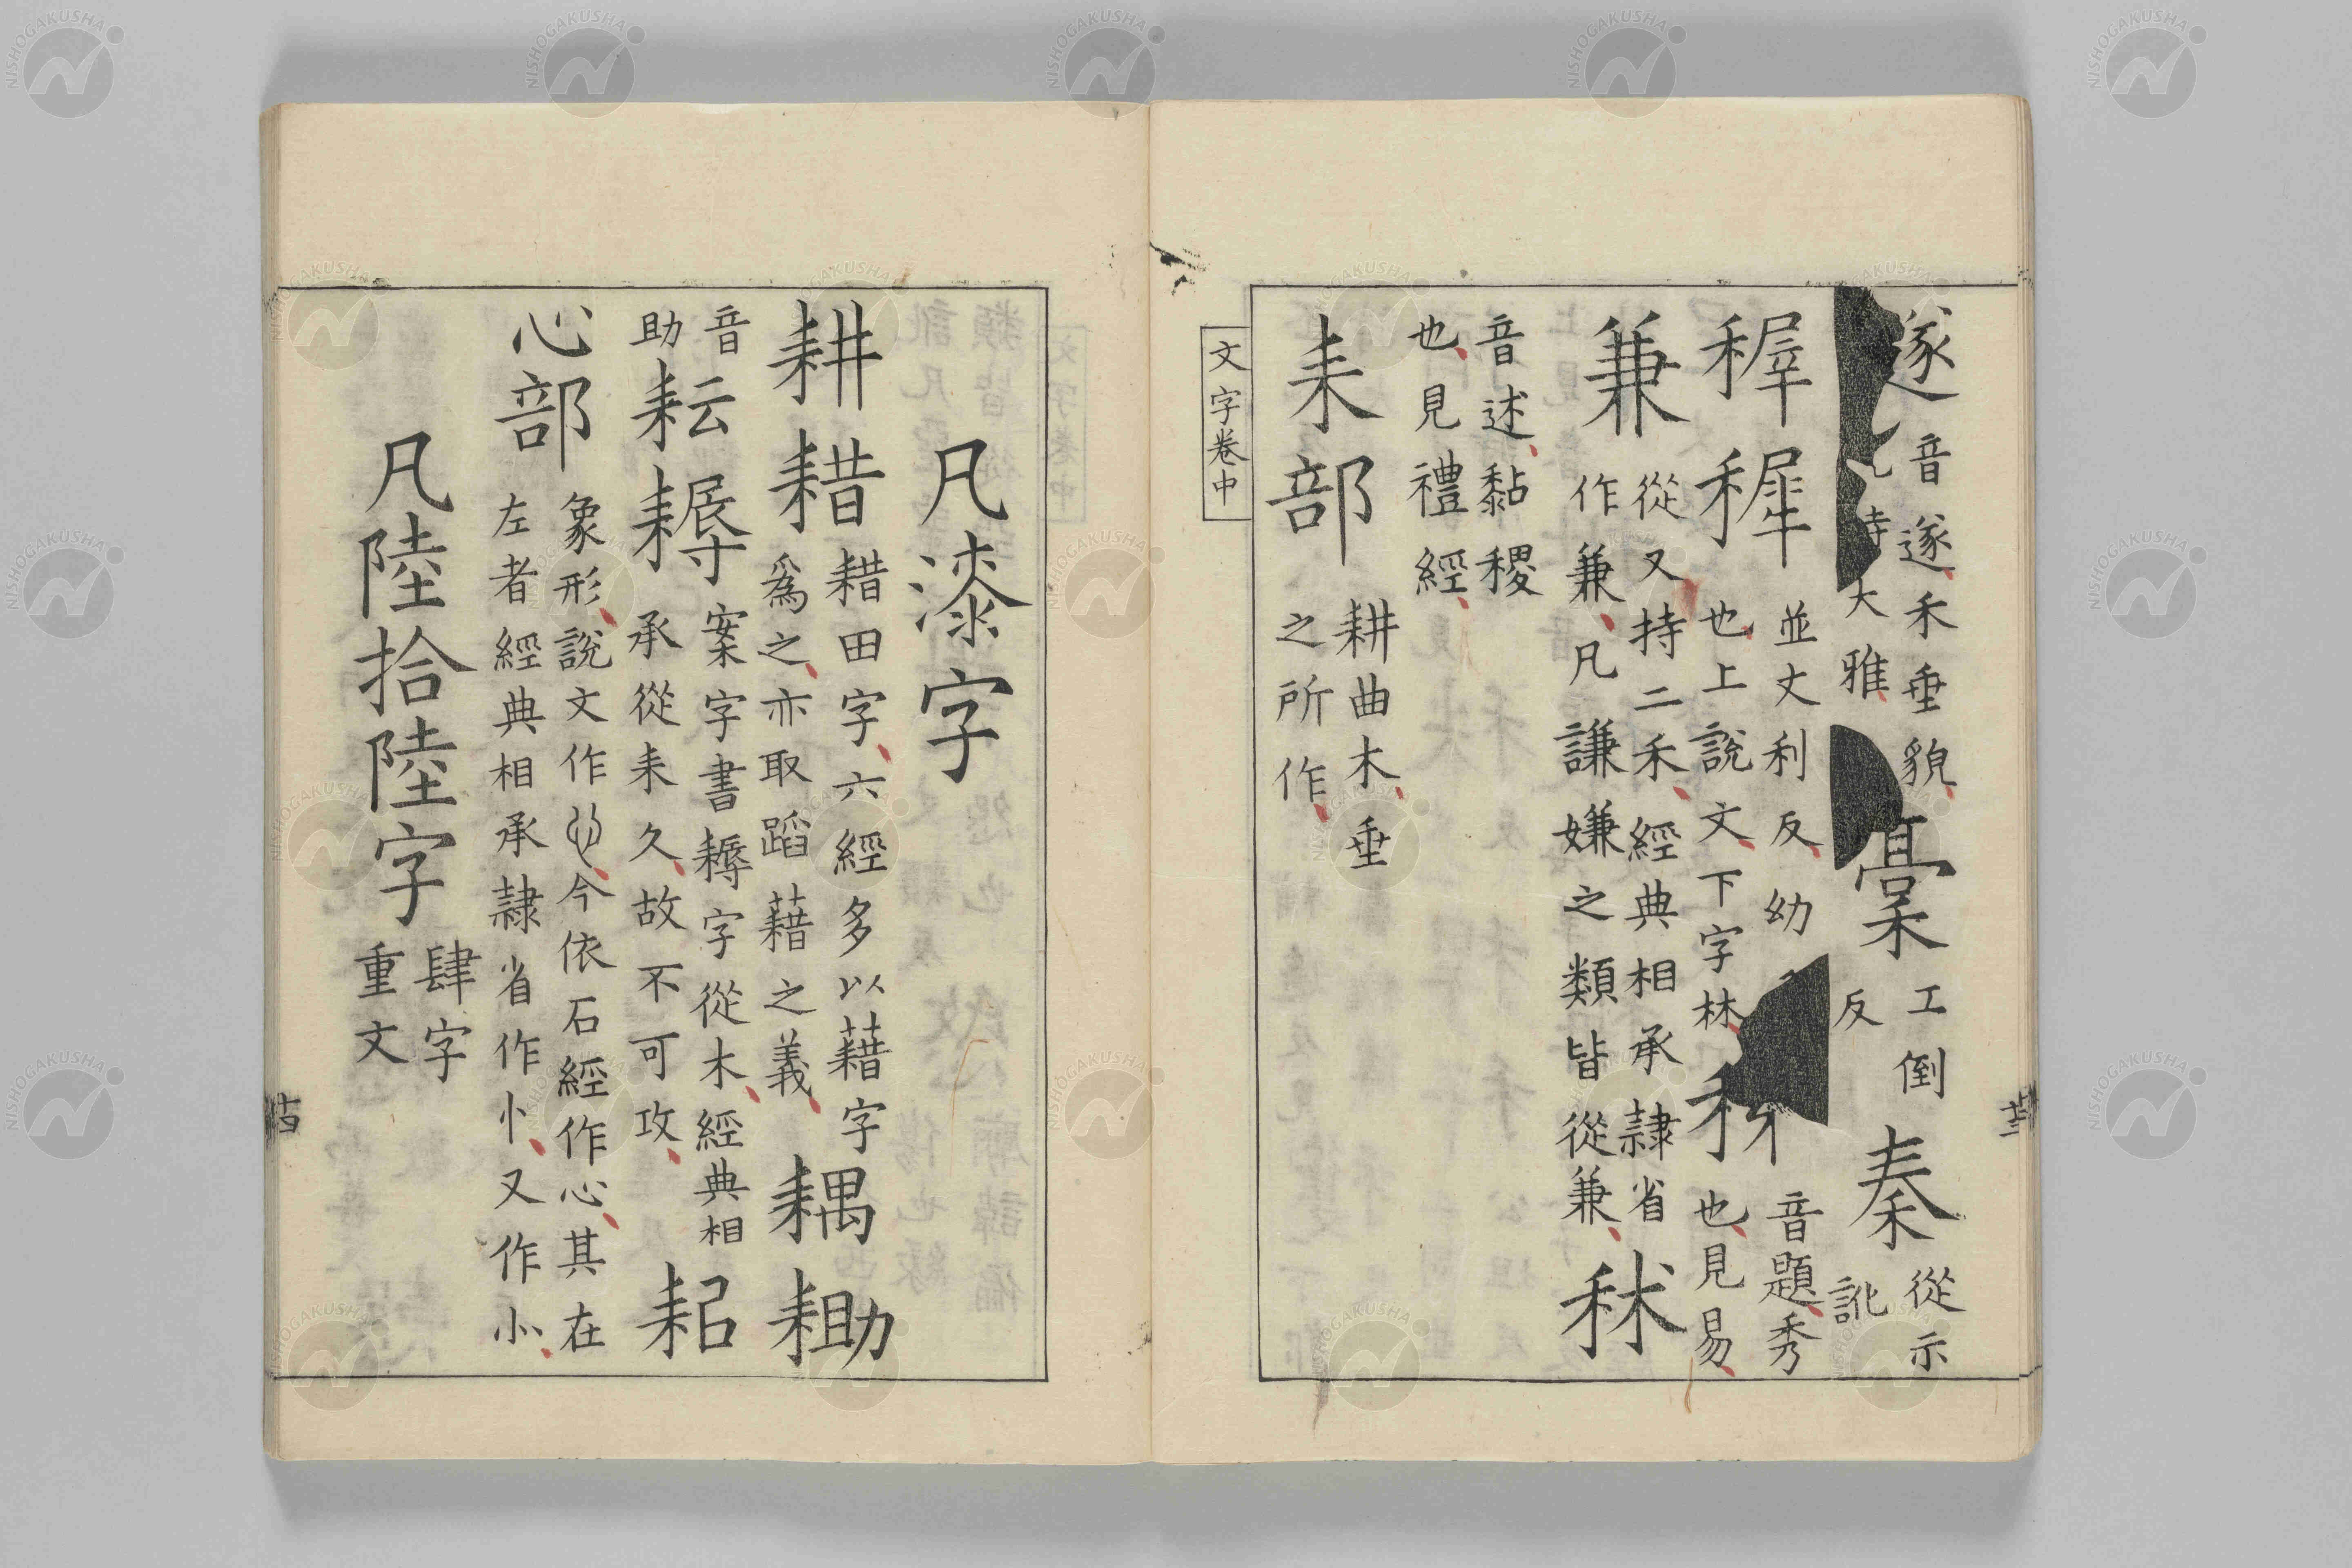 遂音遂禾垂貌
大雅
稾工倒反
秦從示訛
稺稺並丈利反幼
也上說文下字林
音題秀
也見易
兼從又持二禾經典相承隷省
作兼凡謙嫌之類皆從兼
秫
音述黏稷
也見禮經
耒部耕曲木垂
之所作
文字卷中
凡漆字
耕耤耤田字六經多以藉字
爲之亦取蹈藉之義
耦耡
音
助
耘耨案字書耨字從木經典相
承從耒久故不可攻
耜
心部象形說文作今依石經作心其在
左者經典相承隷省作忄又作㣺
凡陸拾陸字肆字
重文
NISHOGAKUSHA